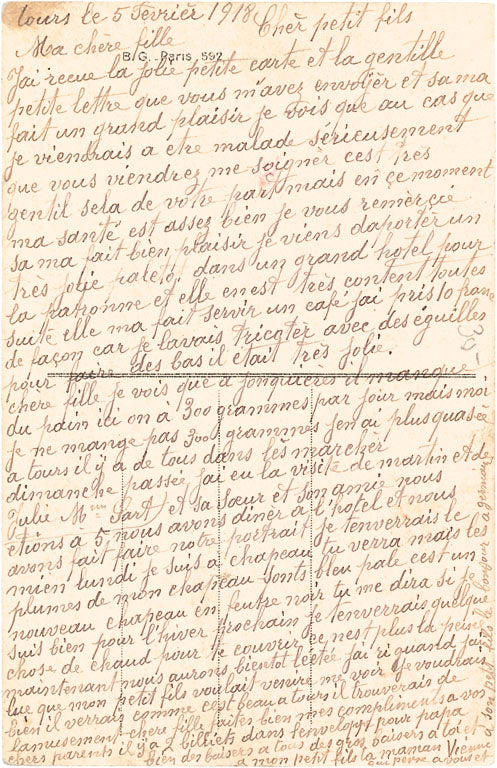 tours le 5 Fevrièr 1918 Chèr petit fils
Ma chère fille
B/G. Paris 592
J'ai recue la jolie petite carte et la gentille
petite lettre que vous m'avez envoyèr et sa ma
fait un grand plaisir je vois que au cas que
je viendrais a etre malade sérieusement
que vous viendrez me soigner cest très
gentil sela de votre part mais en çe moment
ma santé est assez bien je vous remèrçie
sa ma fait bien plaisir je viens daportèr un
très jolie paletó dans un grand hotel pour
la patronne et elle en est très content toutes
suite elle ma fait servir un café j'ai pris 10 franc
de façon car je lavais tricotèr avec des éguilles
pour faire des bas il était très jolie.
chère fille je vois que a jonquières il manque
du pain ici on à 300 grammes par jour mais moi
je ne mange pas 300 grammes j'en ai plus quasé
a tours il y a de tous dans lès marchèr
dimanche passée j'ai eu la visite de martin et de
Julie Mme Sart et sa sœur et son amie nous
etions a 5 nous avons dinèr a l'hotel et nous
avons fait faire notre portrait je tenverrais le
mien lundi je suis a chapeau tu verra mais les
plumes de mon chapeau sonts bleu pale cest un
nouveau chapeau en feutre noir tu me dira si je
suis bien pour l'hiver prochain je tenverrais quelque
chose de chaud pour te couvrir ce nest plus la peine
maintenant nous aurons bientot lestée j'ai ri quand j'ai
lue que mon petit fils voulait venire me voir je voudrais
bien il verrais comme cest beau a tours il trouverais de
lamusement chère fille faites bien mes compliments a vos
chers parents il y a 2 billiets dans lenveloppt pour papa
bien des baisers a tous des gros baisers a toi et
a mon petit fils la maman Vienne